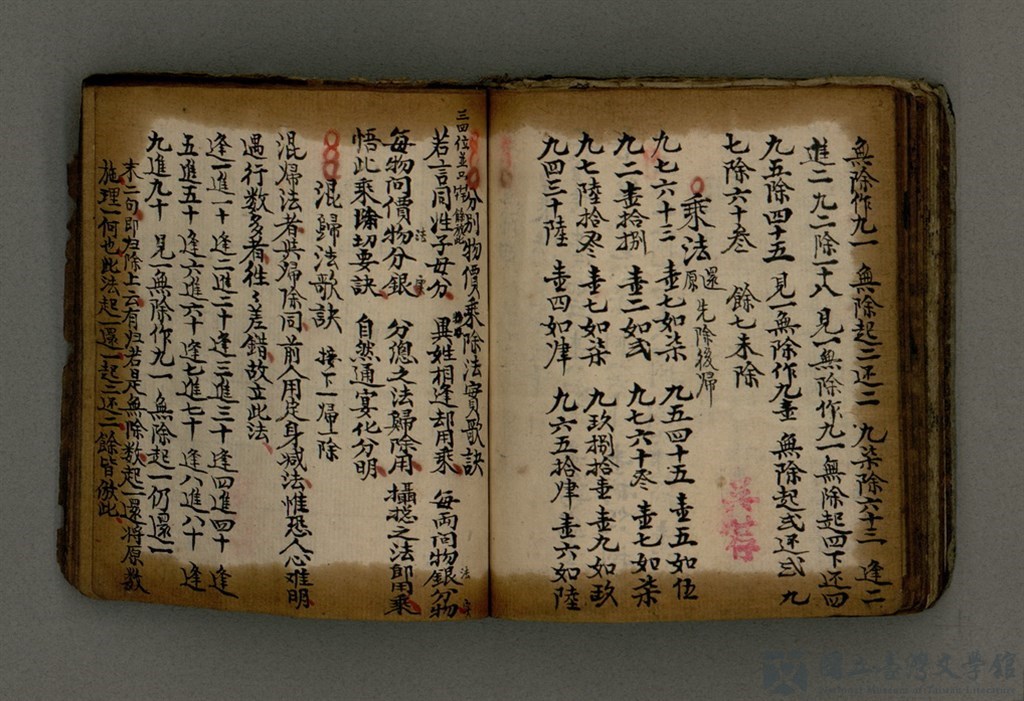 無除作九一　無除起二还二　九柒除六十三　逢二
進二　九二除一十八　見一無除作九一　無除起四下还四
九五除四十五　見一無除作九壹　無除起弍还弍　九
七除六十叁　餘七未除
乘法　還原　先除後歸
九七六十三　壹七如柒　九五四十五　壹五如伍
九二壹拾捌　壹二如弍　九七六十叁　壹七如柒
九七陸拾叁　壹七如柒　九玖捌拾壹　壹九如玖
九四三十陸　壹四如肆　九六五拾肆　壹六如陸
分別物價乘除法實歌訣
若言同姓子母分　異姓相逢却用乘　每両問物銀分物
法　實
每物問價物分銀　分總之法歸除用　攝總之法即用乘
法　實
悟此乘除切要訣　自然通宴化分明
混歸法歌訣　接下一歸一除
混歸法者與歸除同　前人用定身减法　惟恐人心难明
遇行数多者徃々差錯　故立此法
逢一進一十　逢二進二十　逢三進三十　逢四進四十　逢
五進五十　逢六進六十　逢七進七十　逢八進八十　逢
九進九十　見一無除作九一　無除起一仍還一
末二句即归除上云有归若是無除数起一還將原数
施理一何也此法起一還一起二还二餘皆倣此
國立臺灣文學館
National Museum of Taiwan Literature